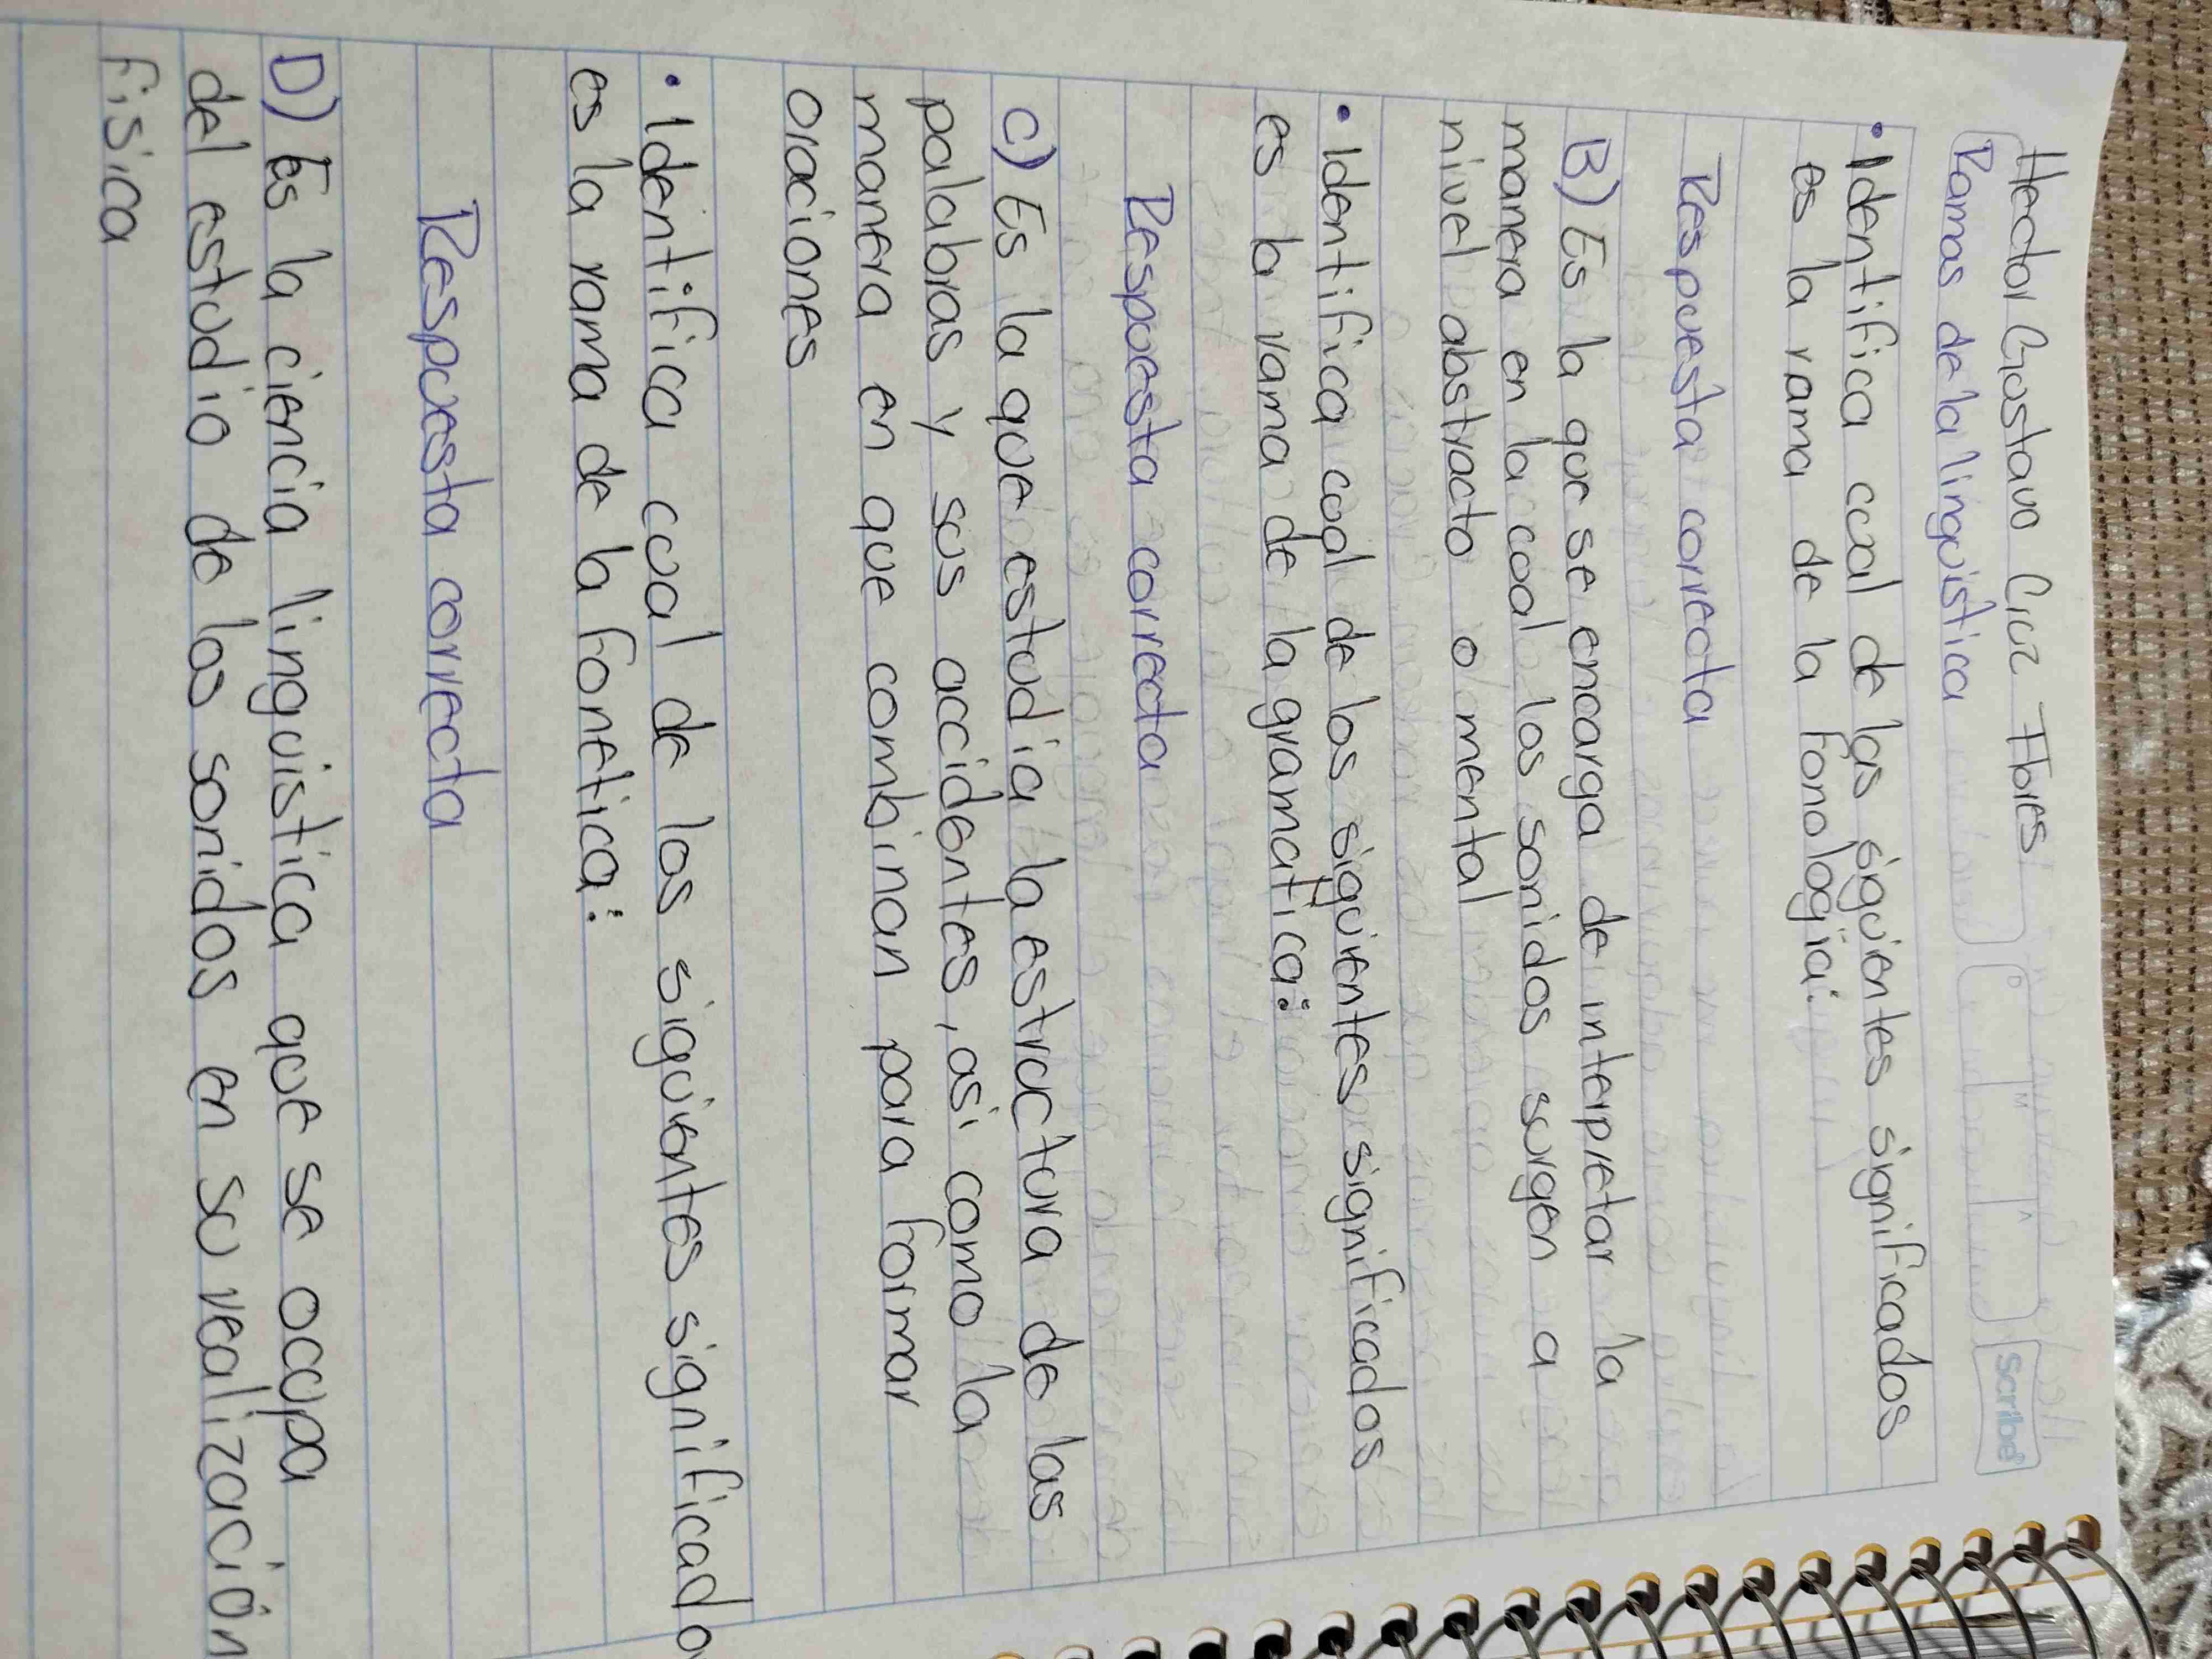 Hector Gustavo Cruz Flores
Ramas de la linguistica
D
M
A
Scribe
• Identifica cual de las siguientes significados
es la rama de la fonologia:
Respuesta correcta
B) Es la que se encarga de interpretar la
manera en la cual los sonidos surgen a
nivel abstracto o mental
• Identifica cual de los siguientes significados
es la rama de la gramatica:
Respuesta correcta
C) Es la que estudia la estructura de las
palabras y sus accidentes, asi como la
manera en que combinan para formar
oraciones
• Identifica cual de los siguientes significado
es la rama de la fonetica:
Respuesta correcta
D) Es la ciencia linguistica que se ocupa
del estudio de los sonidos en su realización
fisica